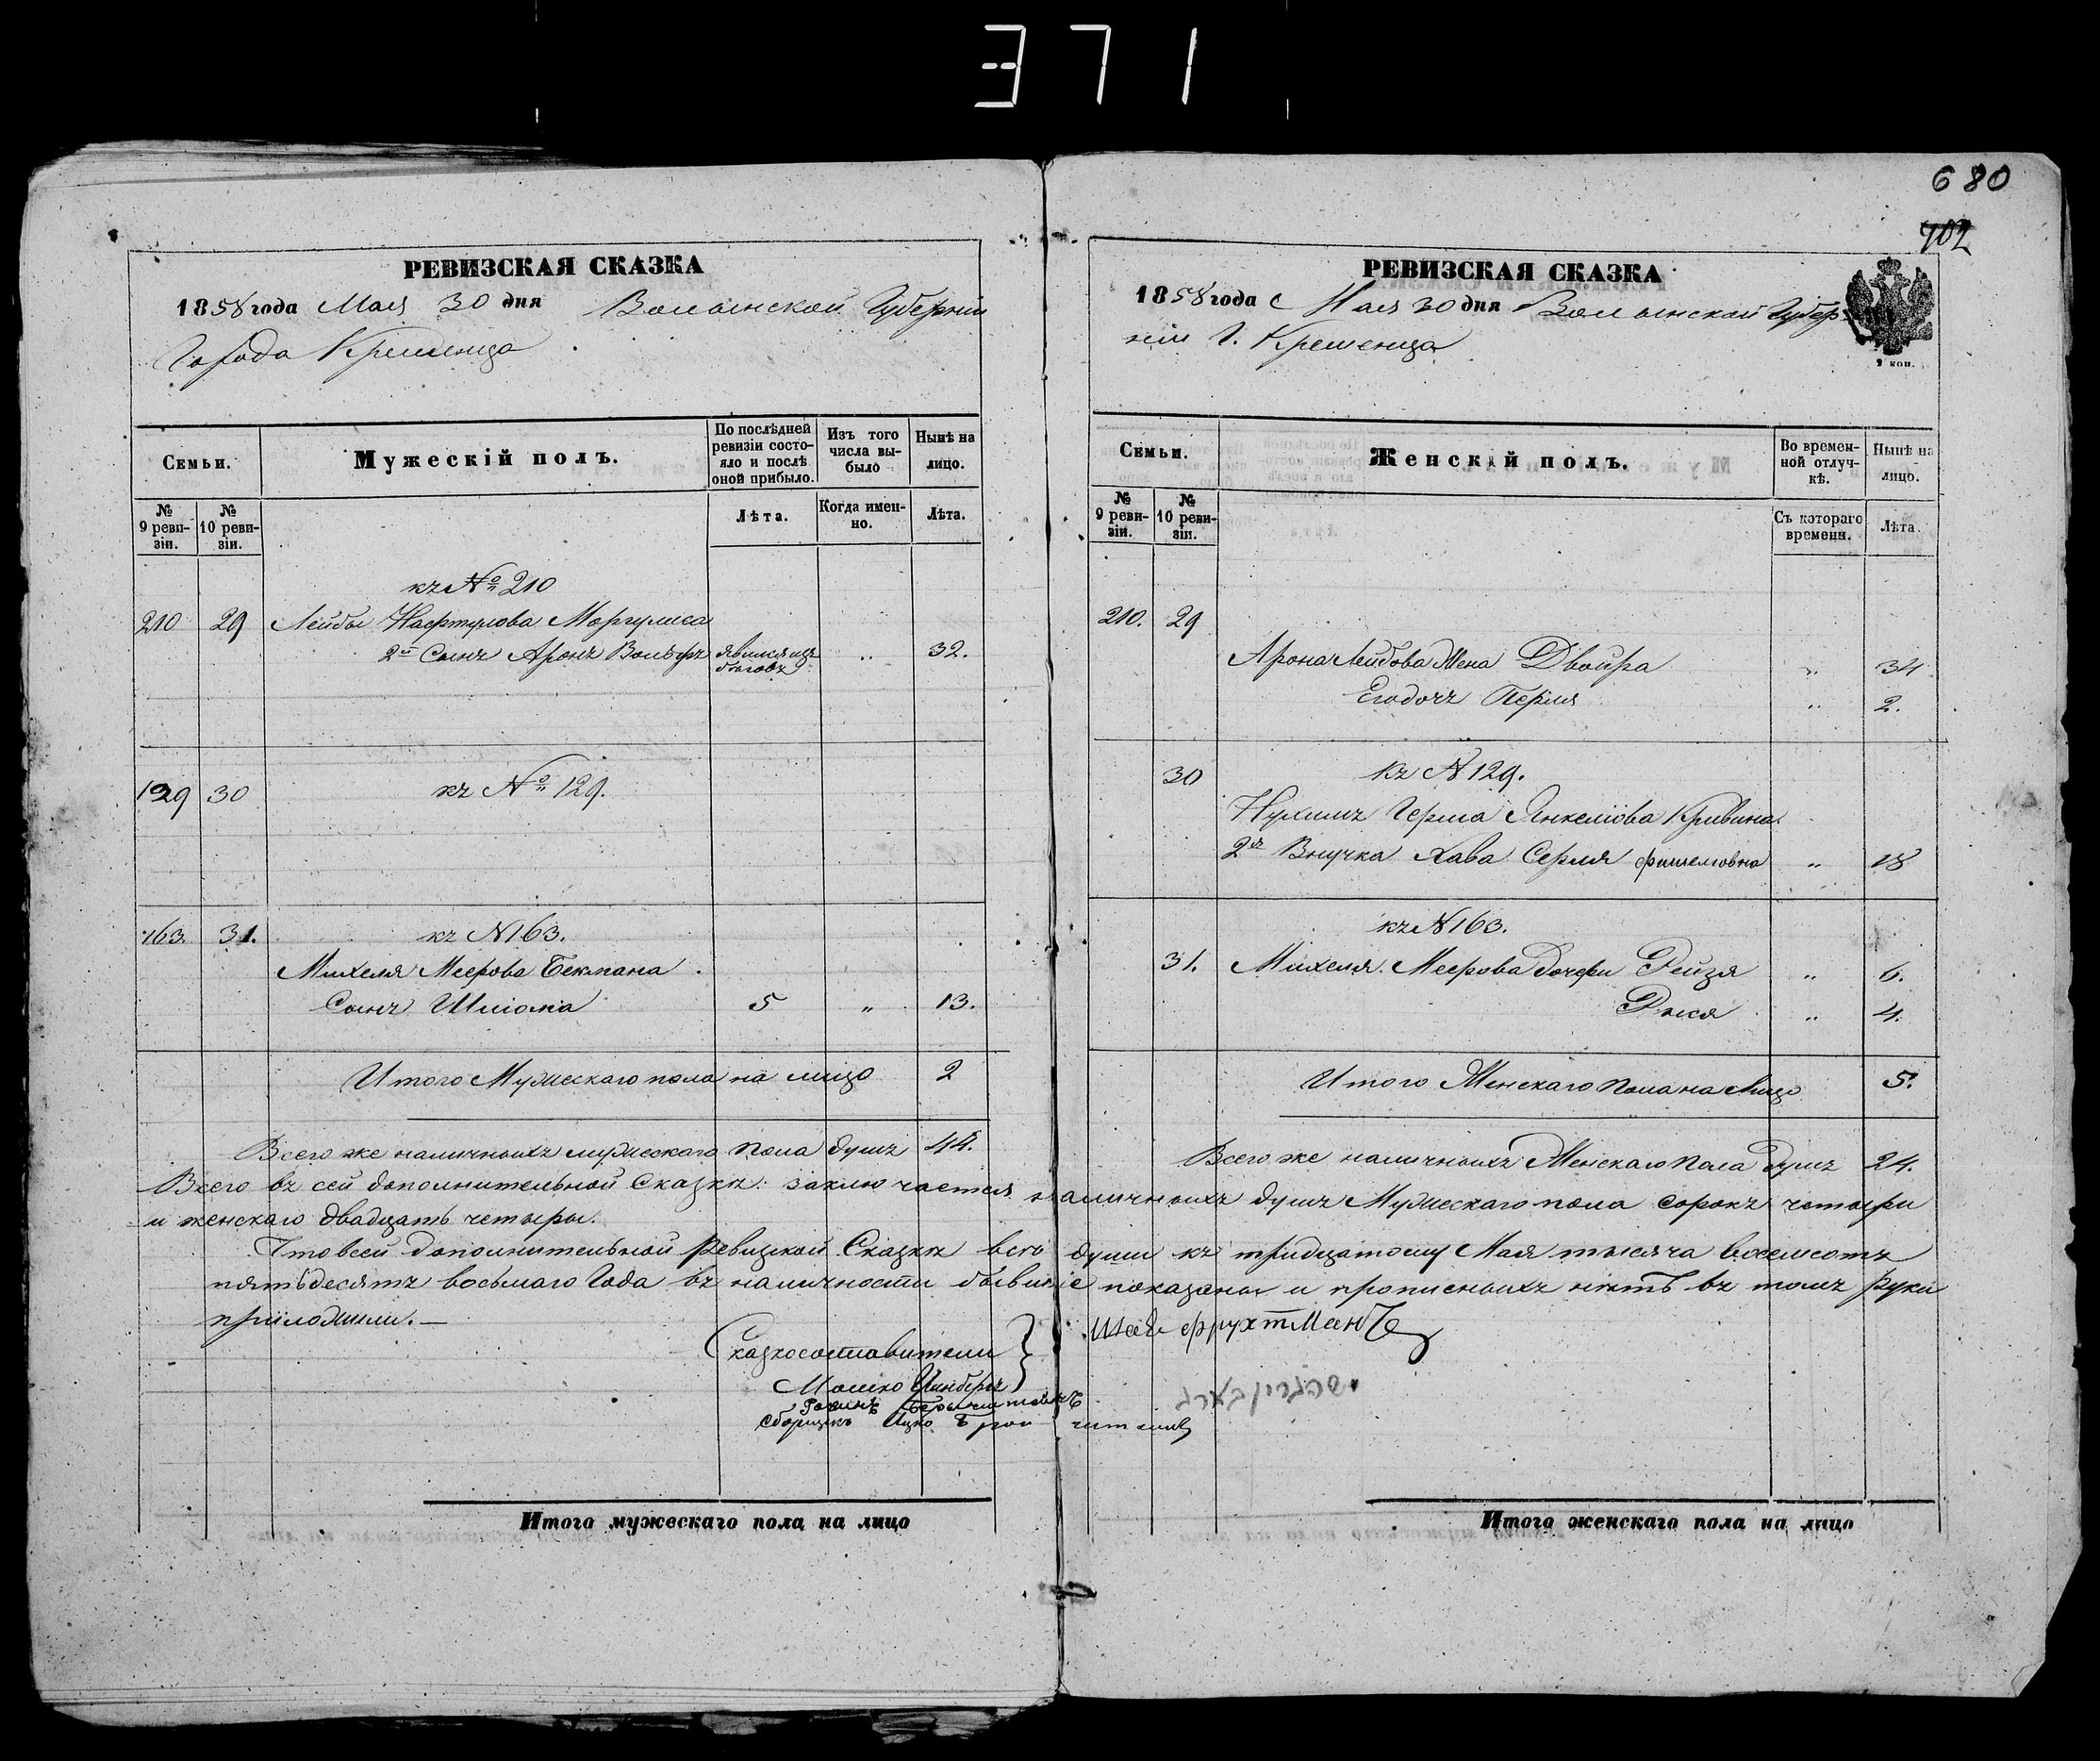 371
680
702
РЕВИЗСКАЯ СКАЗКА
1858 года Мая 30 дня Волынской Губерніи
Города Кременца
Семьи.
Мужескій полъ.
По послѣдней ревизіи состояло и послѣ оной прибыло.
Изъ того числа выбыло
Нынѣ на лицо.
№ 9 ревизіи.
№ 10 ревизіи.
Лѣта.
Когда именно.
Лѣта.
къ № 210
210 29 Лейбы Нафтулова Моргулиса
2й Сынъ Аронъ Вольфъ явился изъ бѣговъ „ 32.
129 30 къ № 129.
163. 31. къ N 163.
Михеля Меерова Бекмана
Сынъ Шліома 5 „ 13.
Итого Мужескаго пола на лицо 2
Всего же наличныхъ мужескаго пола душъ 44.
РЕВИЗСКАЯ СКАЗКА
1858 года Мая 30 дня Волынской Губер-
ніи Г. Кременца
2 коп.
Семьи.
Женскій полъ.
Во временной отлучкѣ.
Нынѣ на лицо.
№ 9 ревизіи.
№ 10 ревизіи.
Съ котораго времени.
Лѣта.
210. 29
Арона Лейбова Жена Двойра „ 34
Его дочь Перля „ 2.
30 къ N 129.
Нухимъ Герша Янкеліова Кривина.
2я Внучка Хава Серля Фишеліовна „ 18
къ N 163.
31. Михеля Меерова Дочери Рейзя „ 6.
„ 4.
Итого Женскаго пола на Лицо 5.
Всего же наличныхъ Женскаго пола душъ 24.
Всего въ сей дополнительной Сказкѣ: заключается наличныхъ душъ Мужескаго пола сорокъ четыри
и женскаго двадцать четыры.
Что всей дополнительной Ревизкой Сказкѣ всѣ души къ тридцатому Мая тысяча восемсотъ
пятьдесятъ восьмаго Года въ наличности бывшіе показаны и прописныхъ нѣтъ въ томъ руки
приложили.—
Сказкосоставители
Мошко
Сборщикъ Ицко
Итого мужескаго пола на лицо
Итого женскаго пола на лицо